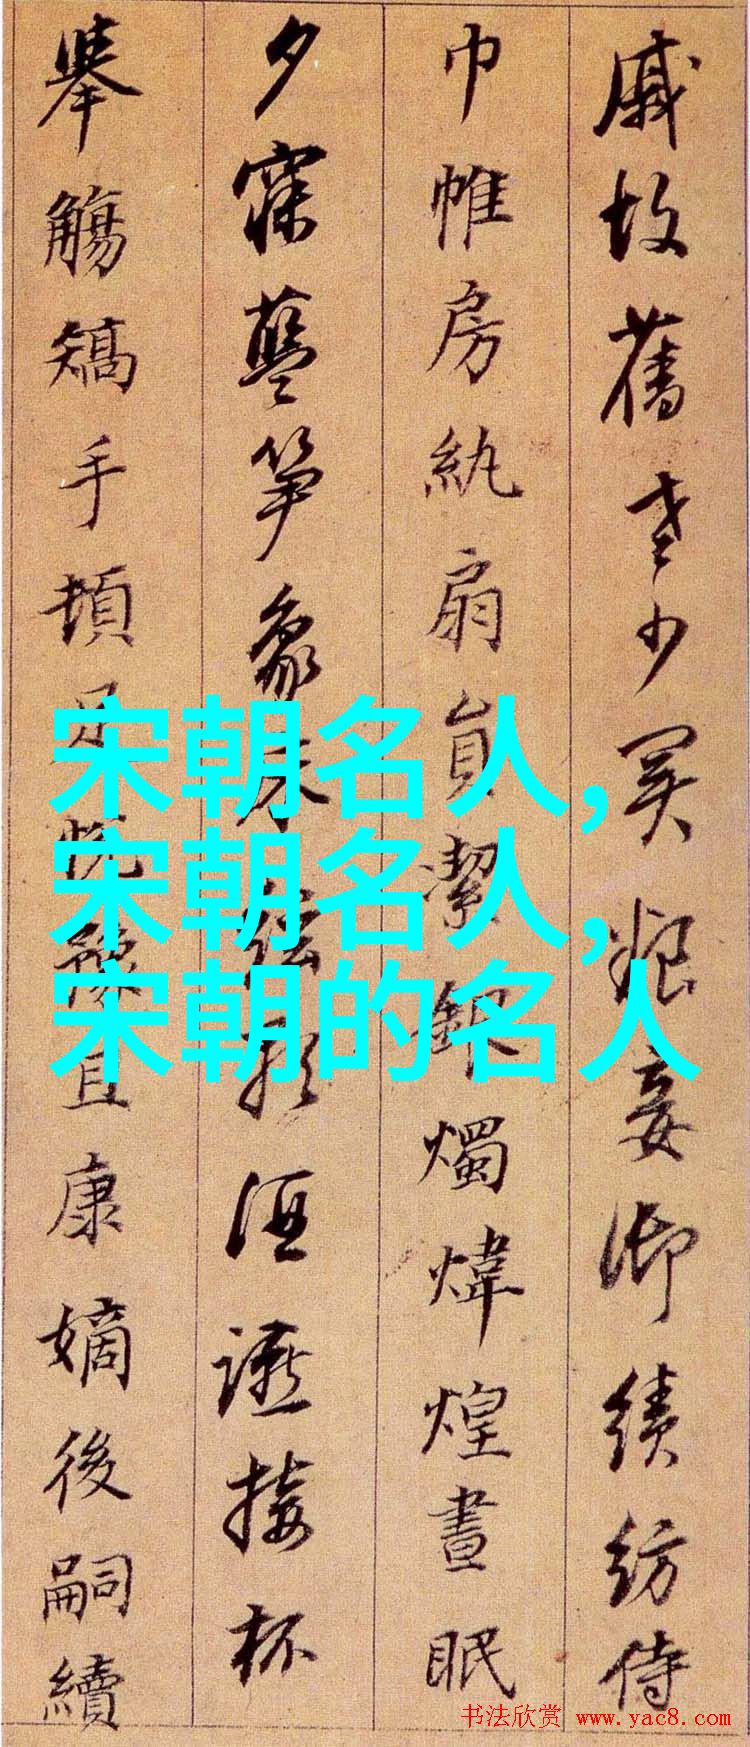 戚故舊老少異粮妾御績紡侍
巾帷房紈扇員潔銀燭煒煌晝眠
夕寐藍笋象床弦歌酒讌接杯
舉觴矯手頓足悅豫且康嫡後嗣續
宋朝名人,
宋朝名人,
宋朝的名人
书法欣赏 www.yac8.com